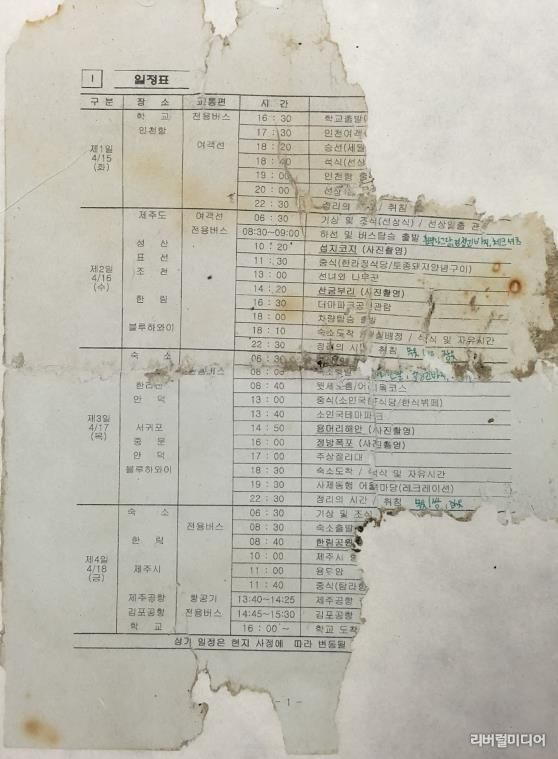 I 일정표
구 분 장 소 교통편 시 간
제1일 4/15 (화)
학 교 전용버스 16 : 30 학교출발
인천항 17 : 30 인천여객
여객선 18 : 20 승선(세월
18 : 40 석식(선상
19 : 00 인천항 출
20 : 00 선상
22 : 30 정리의 / 취침
제2일 4/16 (수)
제주도 여객선 06 : 30 기상 및 조식(선상식) / 선상일출 관
전용버스 08:30~09:00 하선 및 버스탑승 출발
성 산 10 : 20 섭지코지 (사진촬영)
표 선 11 : 30 중식(한라정식당/토종돼지양념구이)
조 천 13 : 00 선녀와 나무꾼
14 : 20 산굼부리 (사진촬영)
한 림 16 : 30 더마파크공연관람
18 : 00 차량탑승 출발
블루하와이 18 : 10 숙소도착 / 실배정 / 석식 및 자유시간
22 : 30 정리의 시간 / 취침
제3일 4/17 (목)
숙 소 06 : 30
08 : 00 숙소출발
한라산 08 : 40 윗세오름/어리목코스
안 덕 13 : 00 중식(소인국한식당/한식뷔페)
13 : 40 소인국테마파크
서귀포 14 : 50 용머리해안 (사진촬영)
중 문 16 : 00 정방폭포 (사진촬영)
안 덕 17 : 00 주상절리대
블루하와이 18 : 30 숙소도착 / 석식 및 자유시간
19 : 30 사제동행 어울 마당(레크레이션)
22 : 30 정리의 시간 / 취침
제4일 4/18 (금)
숙 소 06 : 30 기상 및 조식
전용버스 08 : 30 숙소출발
한 림 08 : 40 한림공원
10 : 00 제주시
제주시 11 : 00 용두암
11 : 40 중식(탐라
제주공항 항공기 13:40~14:25 제주공항
김포공항 전용버스 14:45~15:30 김포공항
학 교 16 : 00 ~ 학교 도착
상기 일정은 현지 사정에 따라 변동될
- 1 -
리버럴미디어